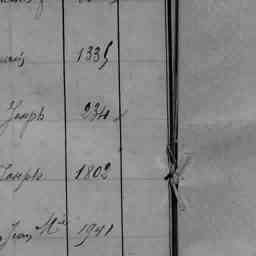 1335
Joseph 234
Joseph 1802
Jean Mie 1941